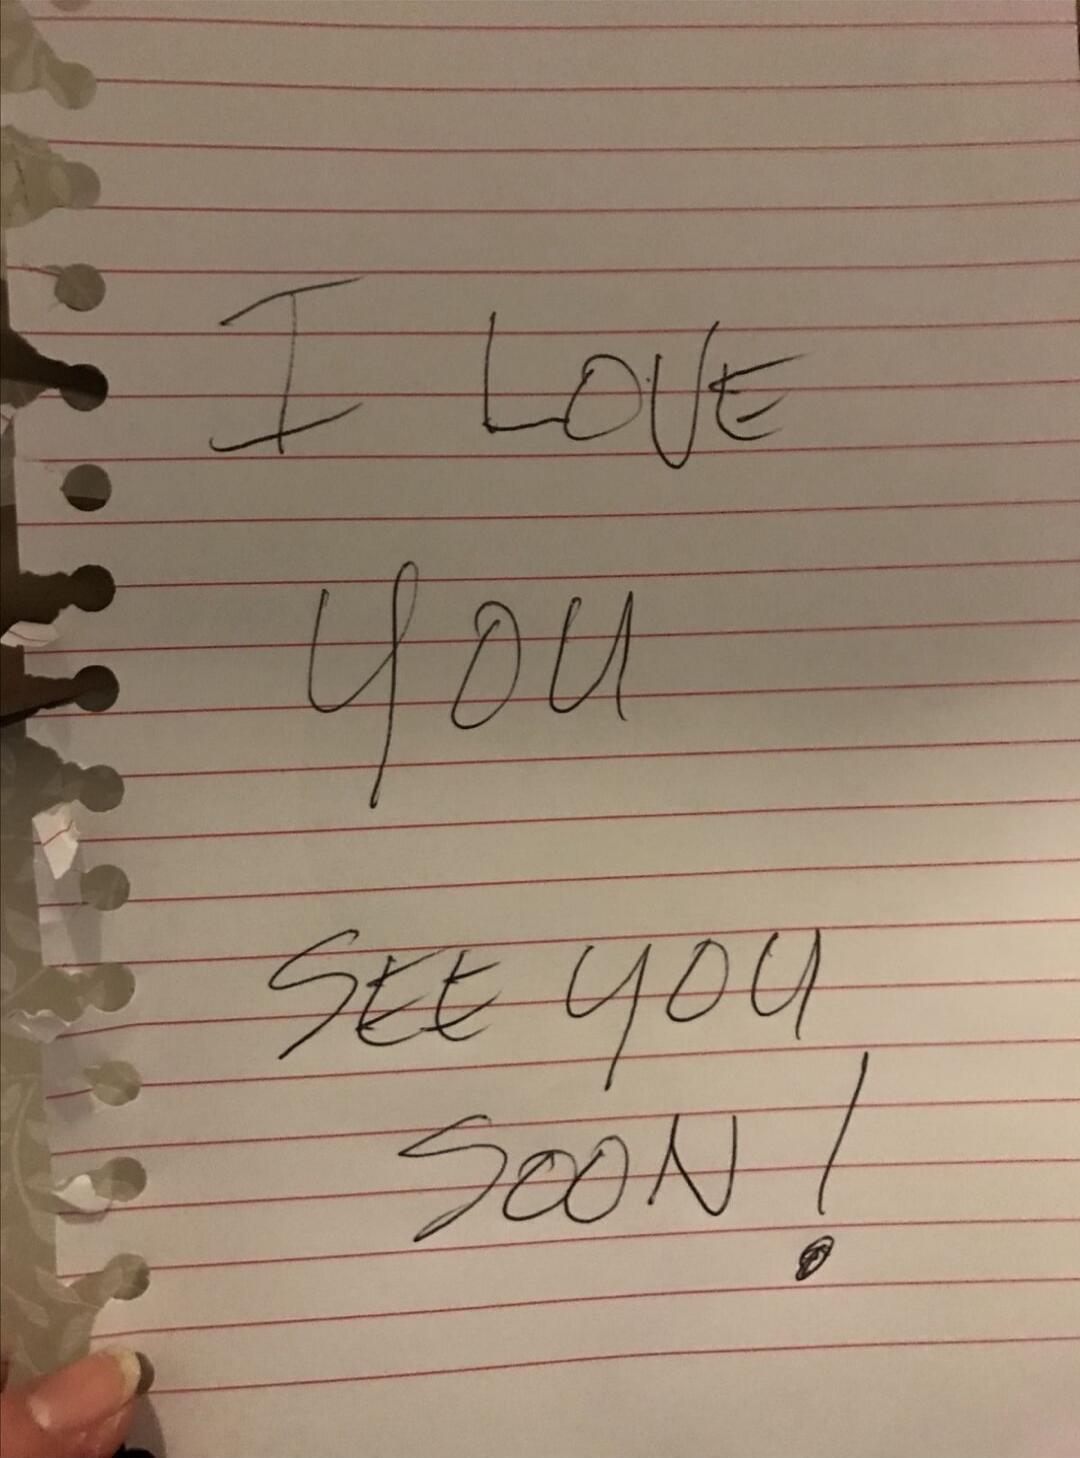 I LOVE
YOU
SEE YOU
SOON!